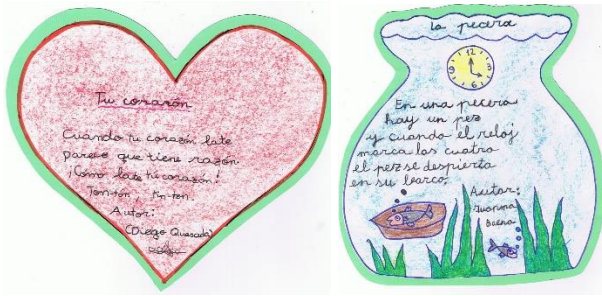 Tu corazón
Cuando tu corazón late
parece que tiene razón
¡Cómo late tu corazón!
Ton-ton, ton-ton.
Autor:
(Diego Quesada)
La pecera
12
9
3
6
En una pecera
hay un pez
y cuando el reloj
marca las cuatro
el pez se despierta
en su barco.
Autor:
Juanma
Baena